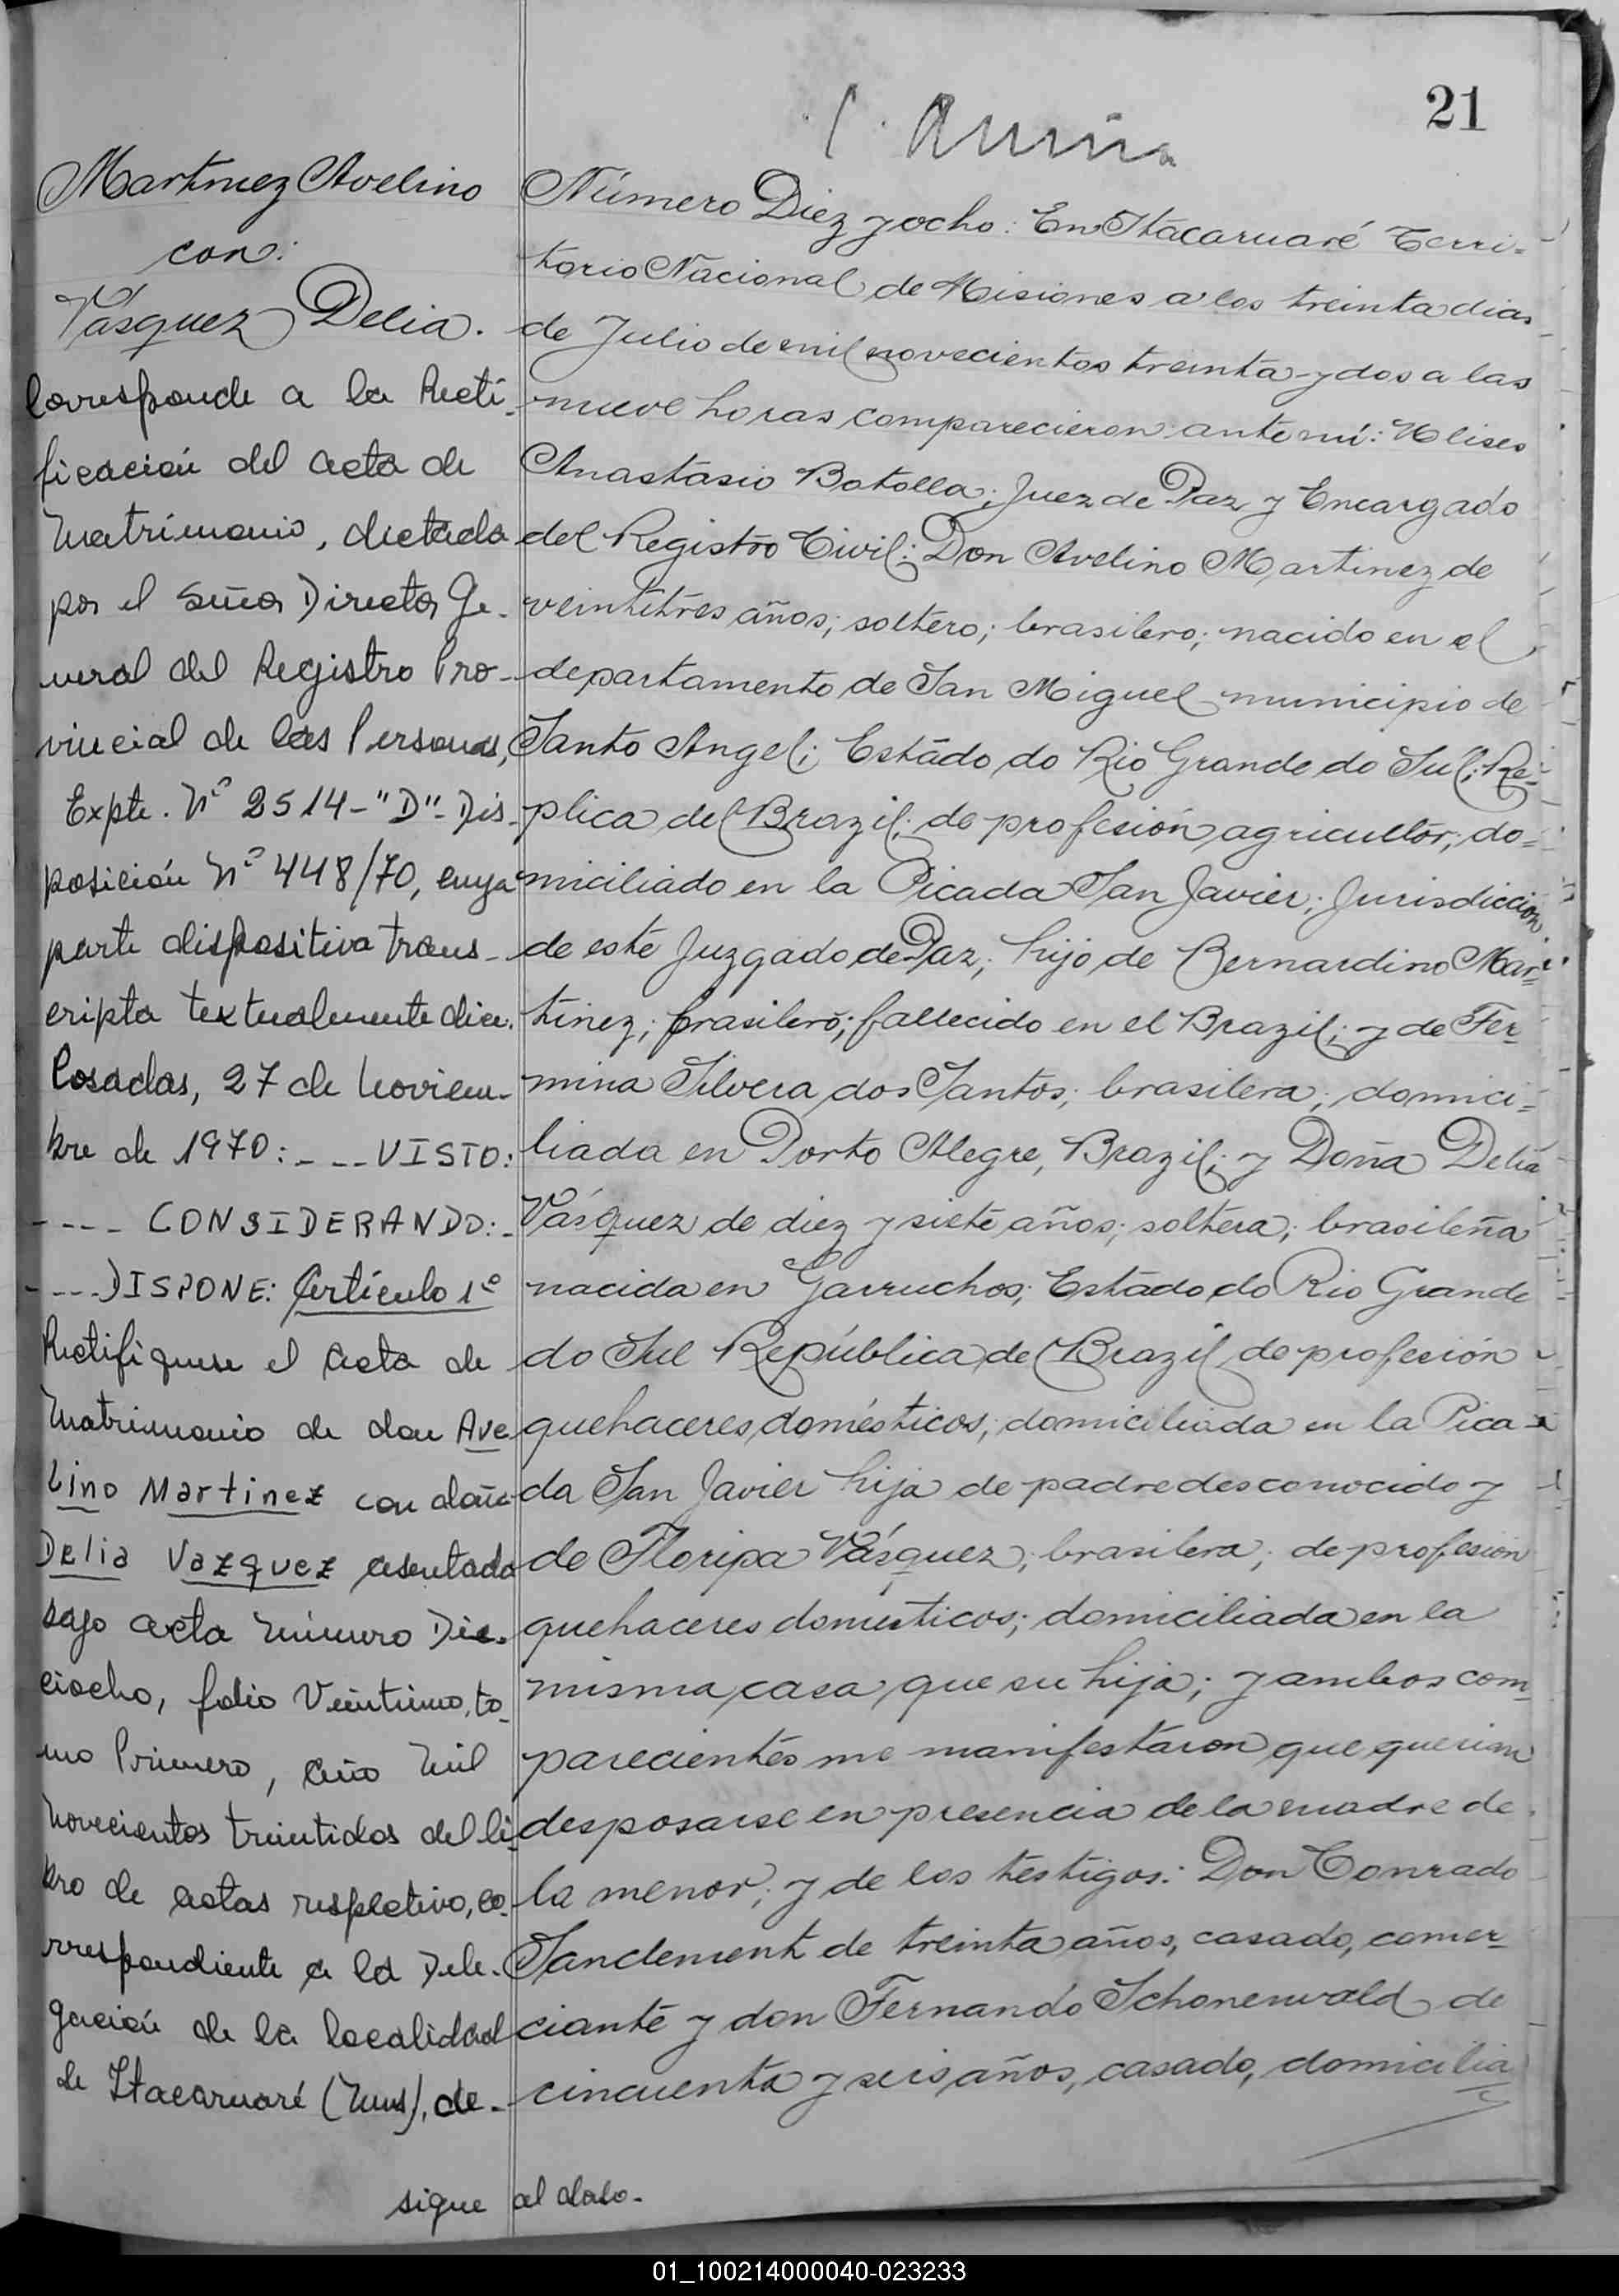 21
Martinez Avelino
con:
Vásquez Delia.
Corresponde a la Recti-
ficación del acta de
Matrimonio, dictada
por el Señor Director Ge-
neral del Registro Pro-
vincial de las Personas,
Expte. Nº 2514-"D"- Dis-
posición Nº 448/70, cuya
parte dispositiva trans-
cripta textualmente dice:
Posadas, 27 de Noviem-
bre de 1970: - - - VISTO:
- - - - CONSIDERANDO: -
- - - - DISPONE: Artículo 1º
Rectifiquese el acta de
Matrimonio de don Ave
lino Martinez con doña
Delia Vazquez asentada
bajo acta Número Die-
ciocho, folio Veintiuno, to-
mo Primero, año Mil
Novecientos treintidos del li-
bro de actas respectivo, co-
rrespondiente a la Dele-
gación de la localidad
de Itacaruaré (Mnes), de-
Número Diez y ocho: En Itacaruaré Terri-
torio Nacional de Misiones a los treinta dias
de Julio de mil novecientos treinta y dos a las
nueve horas comparecieron ante mi: Ulises
Anastasio Botolla; Juez de Paz y Encargado
del Registro Civil: Don Avelino Martinez de
veintitres años; soltero; brasilero; nacido en el
departamento de San Miguel municipio de
Santo Angel; Estádo do Rio Grande do Sul; Re-
plica del Brazil; de profesión agricultor; do=
miciliado en la Picada San Javier; Jurisdicción
de este Juzgado de Paz; hijo de Bernardino Mar=
tinez; brasilero; fallecido en el Brazil; y de Fer
mina Silvera dos Santos; brasilera; domici=
liada en Porto Alegre, Brazil; y Doña Delia
Vásquez de diez y siete años; soltera; brasileña
nacida en Garruchos; Estádo do Rio Grande
do Sul República de Brazil de profesión
quehaceres domésticos; domiciliada en la Pica
da San Javier hija de padre desconocido y
de Floripa Vásquez; brasilera; de profesion
quehaceres domésticos; domiciliada en la
misma casa que su hija; y ambos com
parecientes me manifestaron que querian
desposarse en presencia de la madre de
la menor; y de los testigos: Don Conrado
Sanclement de treinta años, casado, comer-
ciante y don Fernando Schonenwald de
cincuenta y seis años, casado, domicilia
sigue al dorso.
01_100214000040-023233